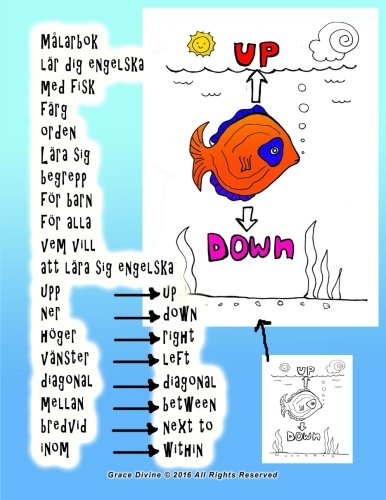 Målarbok
lär dig engelska
Med Fisk
Färg
orden
Lära Sig
begrepp
För barn
För alla
vem vill
att lära Sig engelska
upp up
ner down
Höger right
vänster left
diagonal diagonal
Mellan between
bredvid next to
inom within
UP
DOWN
UP
DOWN
Grace Divine © 2016 All Rights Reserved